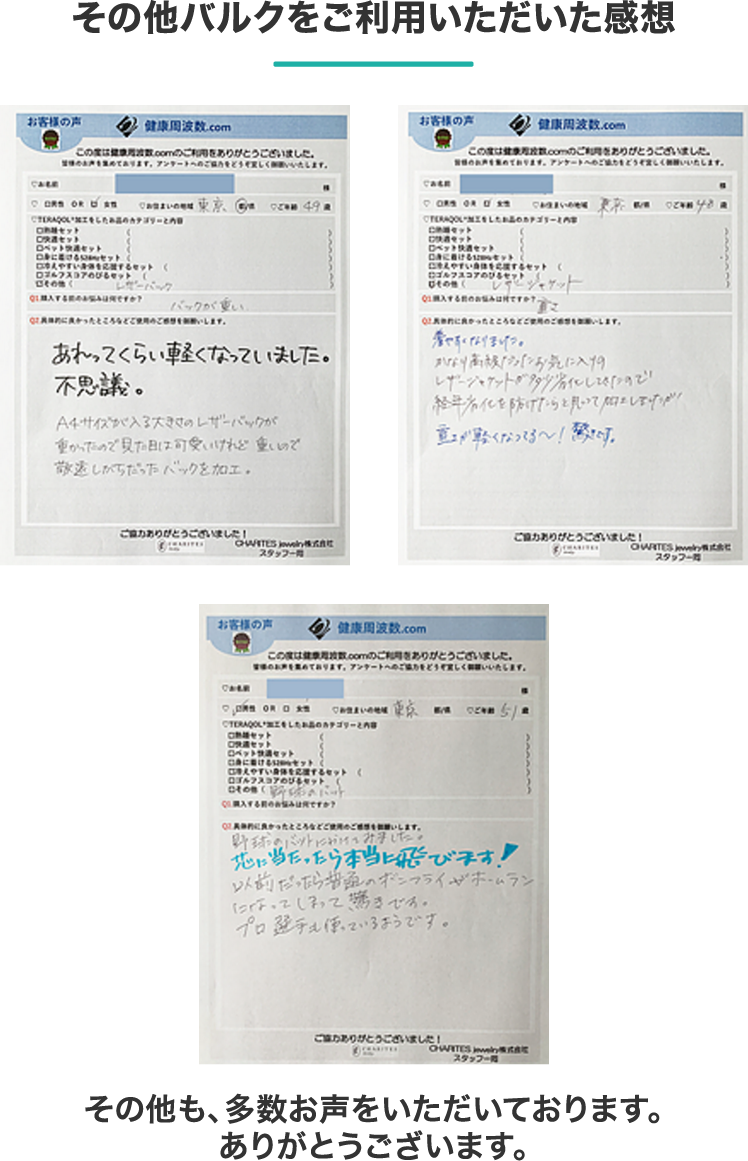 その他バルクをご利用いただいた感想
お客様の声
健康周波数.com
この度は健康周波数.comのご利用をありがとうございました。
皆様のお声を集めております。アンケートへのご協力をどうぞ宜しく御願いいたします。
♡お名前 様
♡ 口男性 OR 口 女性 ♡お住まいの地域 東京 都/県 ♡ご年齢 49 歳
♡TERAQOL®加工をしたお品のカテゴリーと内容
口熟睡セット ( )
口快適セット ( )
口ペット快適セット ( )
口身に着ける528Hzセット ( )
口冷えやすい身体を応援するセット ( )
口ゴルフスコアのびるセット ( )
口その他 ( レザーバック )
Q1.購入する前のお悩みは何ですか?
バックが重い
Q2.具体的に良かったところなどご使用のご感想を御願いします。
あれってくらい軽くなっていました。
不思議。
A4サイズが入る大きさのレザーバックが
重かったので見た目は可愛いけれど 重いので
敬遠しがちだった バックを加工。
ご協力ありがとうございました!
CHARITES
CHARITES jewelry株式会社
スタッフ一同
お客様の声
健康周波数.com
この度は健康周波数.comのご利用をありがとうございました。
皆様のお声を集めております。アンケートへのご協力をどうぞ宜しく御願いいたします。
♡お名前 様
♡ 口男性 OR 口 女性 ♡お住まいの地域 東京 都/県 ♡ご年齢 歳
♡TERAQOL®加工をしたお品のカテゴリーと内容
口熟睡セット ( )
口快適セット ( )
口ペット快適セット ( )
口身に着ける528Hzセット ( )
口冷えやすい身体を応援するセット ( )
口ゴルフスコアのびるセット ( )
口その他 ( レザージャケット )
Q1.購入する前のお悩みは何ですか?
重さ
Q2.具体的に良かったところなどご使用のご感想を御願いします。
着やすくなりました。
かなり高級だったお気に入りの
レザージャケットが多少劣化してきたので
経年劣化を防げたらと思って加工しましたが
重さが軽くなってる〜! 驚きです。
ご協力ありがとうございました!
CHARITES
CHARITES jewelry株式会社
スタッフ一同
お客様の声
健康周波数.com
この度は健康周波数.comのご利用をありがとうございました。
皆様のお声を集めております。アンケートへのご協力をどうぞ宜しく御願いいたします。
♡お名前 様
♡ 口男性 OR 口 女性 ♡お住まいの地域 東京 都/県 ♡ご年齢 51 歳
♡TERAQOL®加工をしたお品のカテゴリーと内容
口熟睡セット ( )
口快適セット ( )
口ペット快適セット ( )
口身に着ける528Hzセット ( )
口冷えやすい身体を応援するセット ( )
口ゴルフスコアのびるセット ( )
口その他 ( 野球のバット )
Q1.購入する前のお悩みは何ですか?
Q2.具体的に良かったところなどご使用のご感想を御願いします。
野球のバットにかけてみました。
芯に当たったら本当に飛びます!
以前だったら普通のボンフライがホームラン
になってしまって 驚きです。
プロ選手も使っているようです。
ご協力ありがとうございました!
CHARITES
CHARITES jewelry株式会社
スタッフ一同
その他も、多数お声をいただいております。
ありがとうございます。